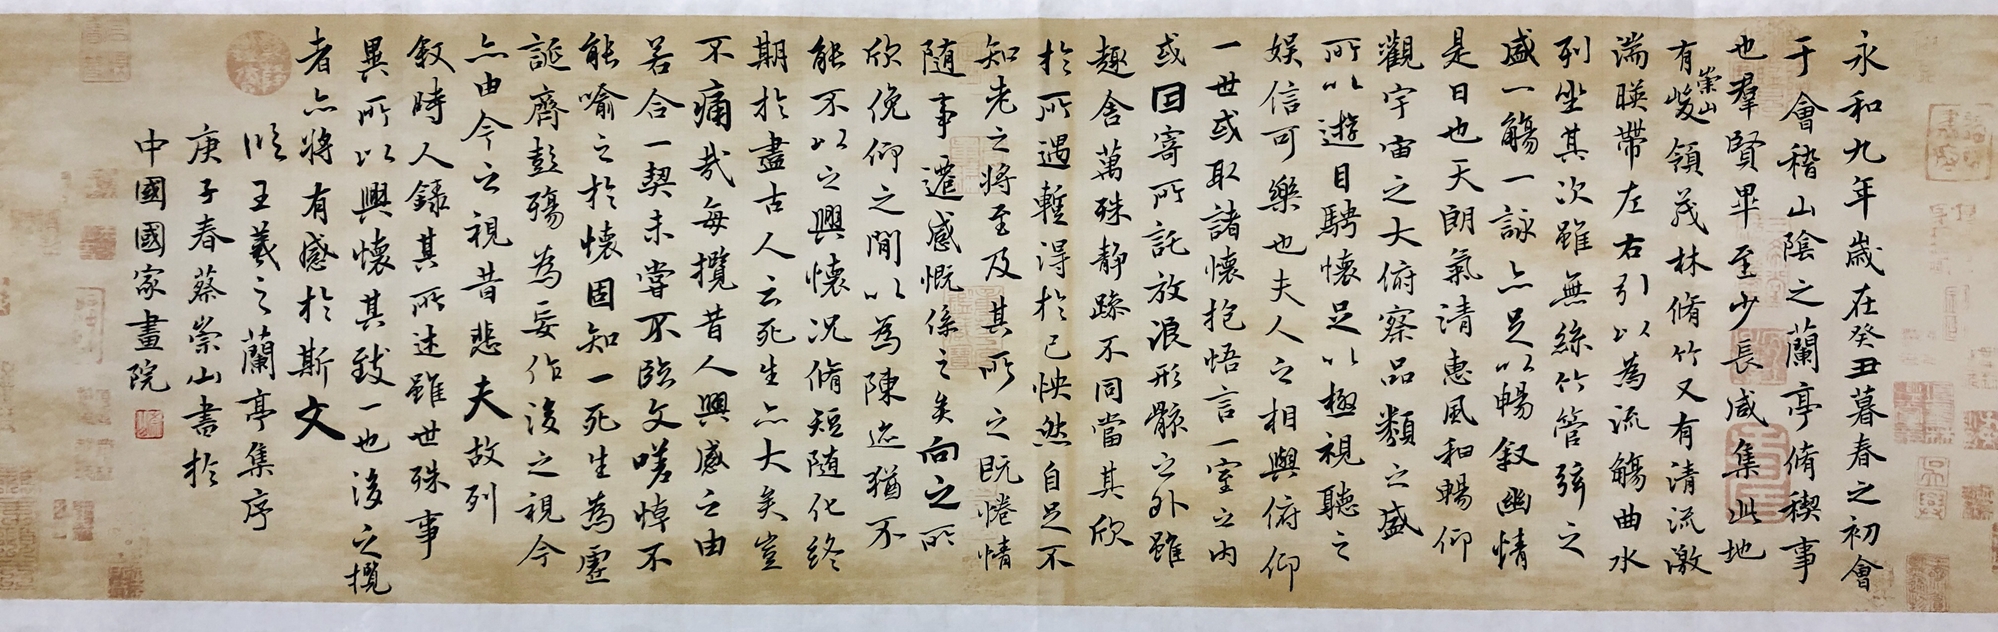 永和九年歲在癸丑暮春之初會
于會稽山陰之蘭亭脩稧事
也羣賢畢至少長咸集此地
有崇山峻領茂林脩竹又有清流激
湍暎帶左右引以為流觴曲水
列坐其次雖無絲竹管弦之
盛一觴一詠亦足以暢叙幽情
是日也天朗氣清惠風和暢仰
觀宇宙之大俯察品類之盛
所以遊目騁懷足以極視聽之
娛信可樂也夫人之相與俯仰
一世或取諸懷抱悟言一室之內
或因寄所託放浪形骸之外雖
趣舍萬殊靜躁不同當其欣
於所遇暫得於己怏然自足不
知老之將至及其所之既惓情
隨事遷感慨係之矣向之所
欣俛仰之間以為陳迹猶不
能不以之興懷況脩短隨化終
期於盡古人云死生亦大矣豈
不痛哉每攬昔人興感之由
若合一契未嘗不臨文嗟悼不
能喻之於懷固知一死生為虛
誕齊彭殤為妄作後之視今
亦由今之視昔悲夫故列
叙時人錄其所述雖世殊事
異所以興懷其致一也後之攬
者亦將有感於斯文
臨王羲之蘭亭集序
庚子春蔡崇山書於
中國國家畫院